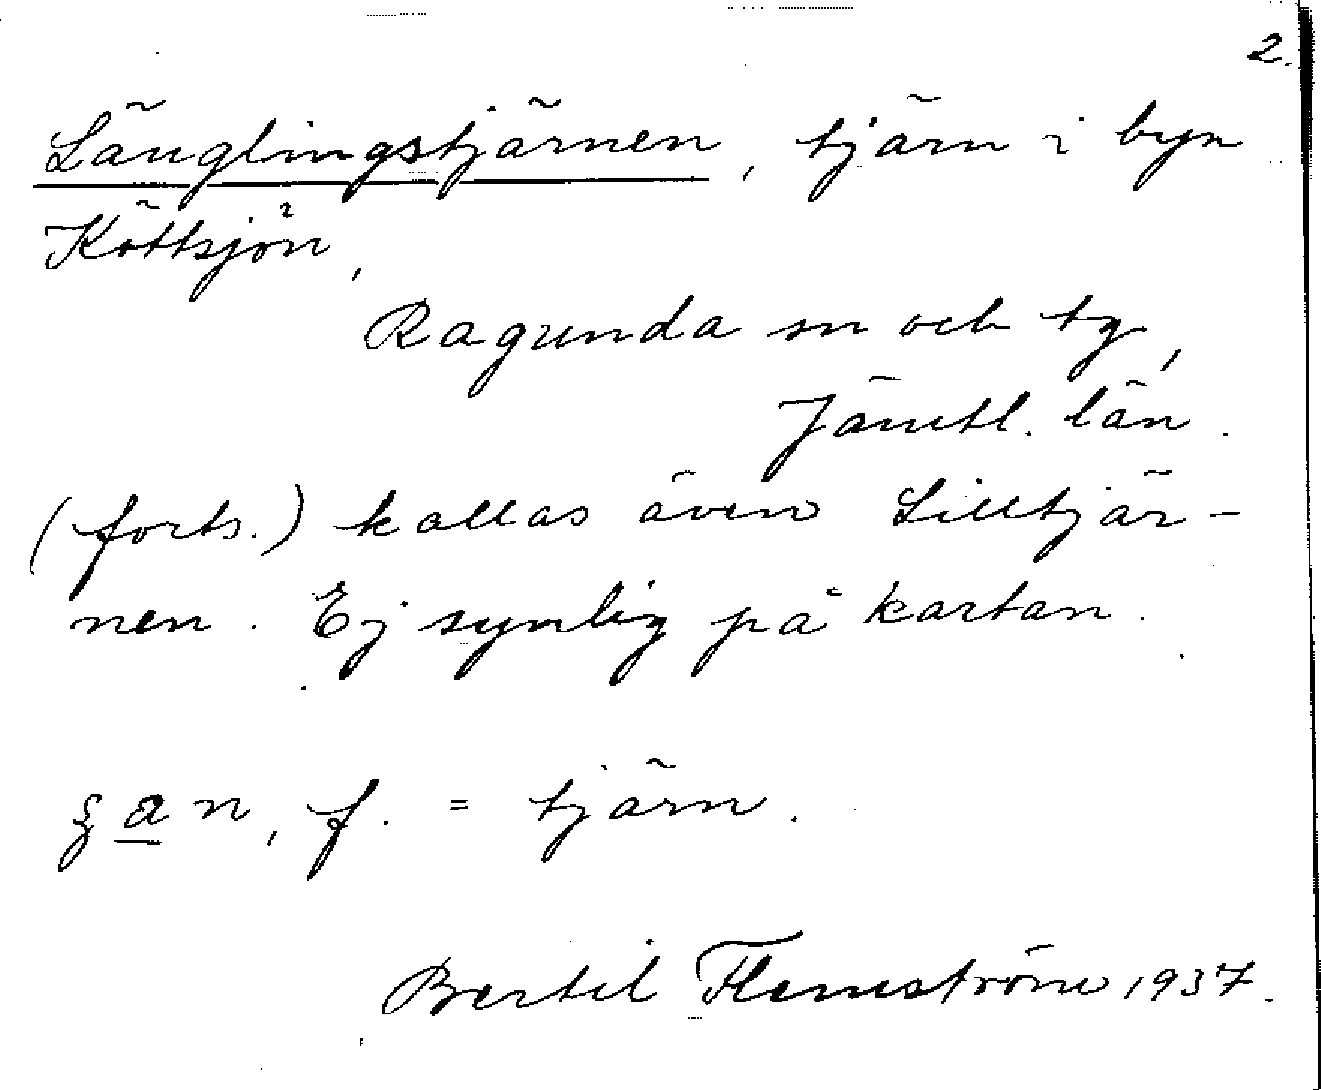 2.
Länglingstjärnen, tjärn i byn
Köttsjön,
Ragunda sn och tg,
Jämtl. län.
(forts.) kallas även Lilltjär-
nen. Ej synlig på kartan.
ʒan, f. = tjärn.
Bertil Flemström 1937.